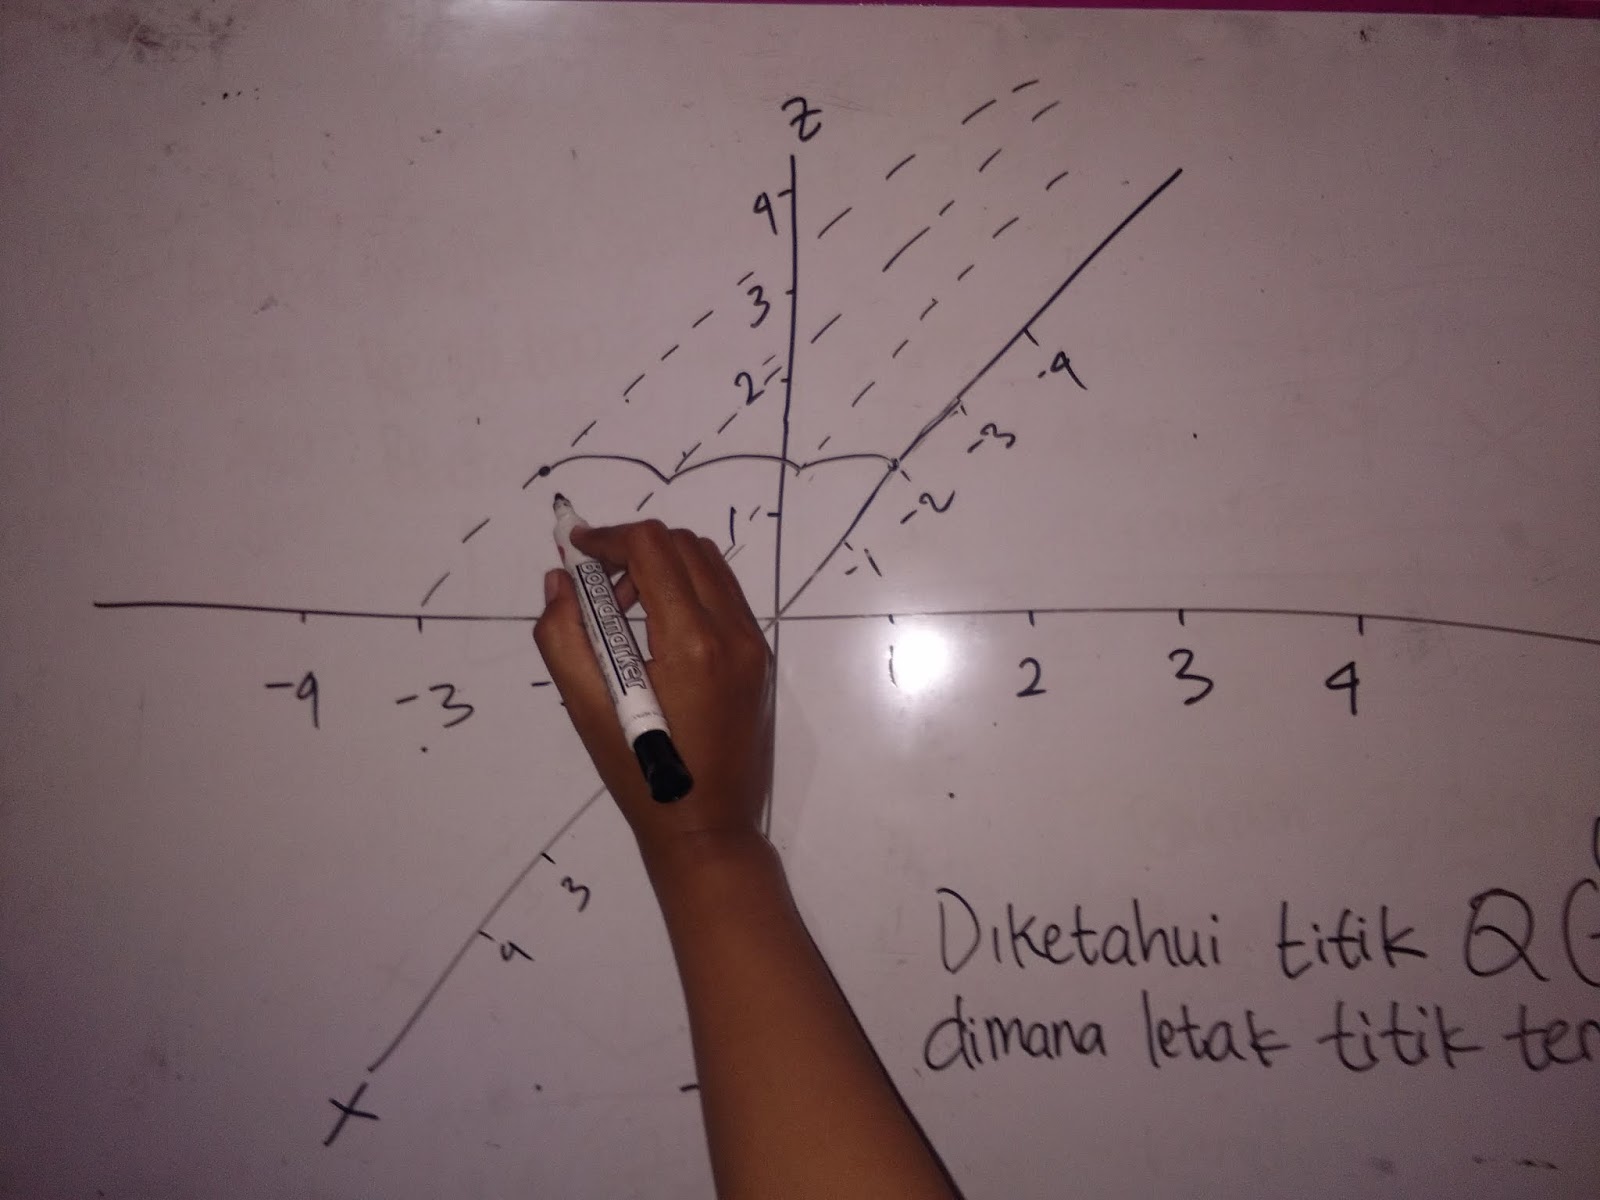 Z
4
3
2
1
-4
-3
-2
-1
-4 -3 - 1 2 3 4
Boardmarker
3
4
X
Diketahui titik Q (
dimana letak titik ter